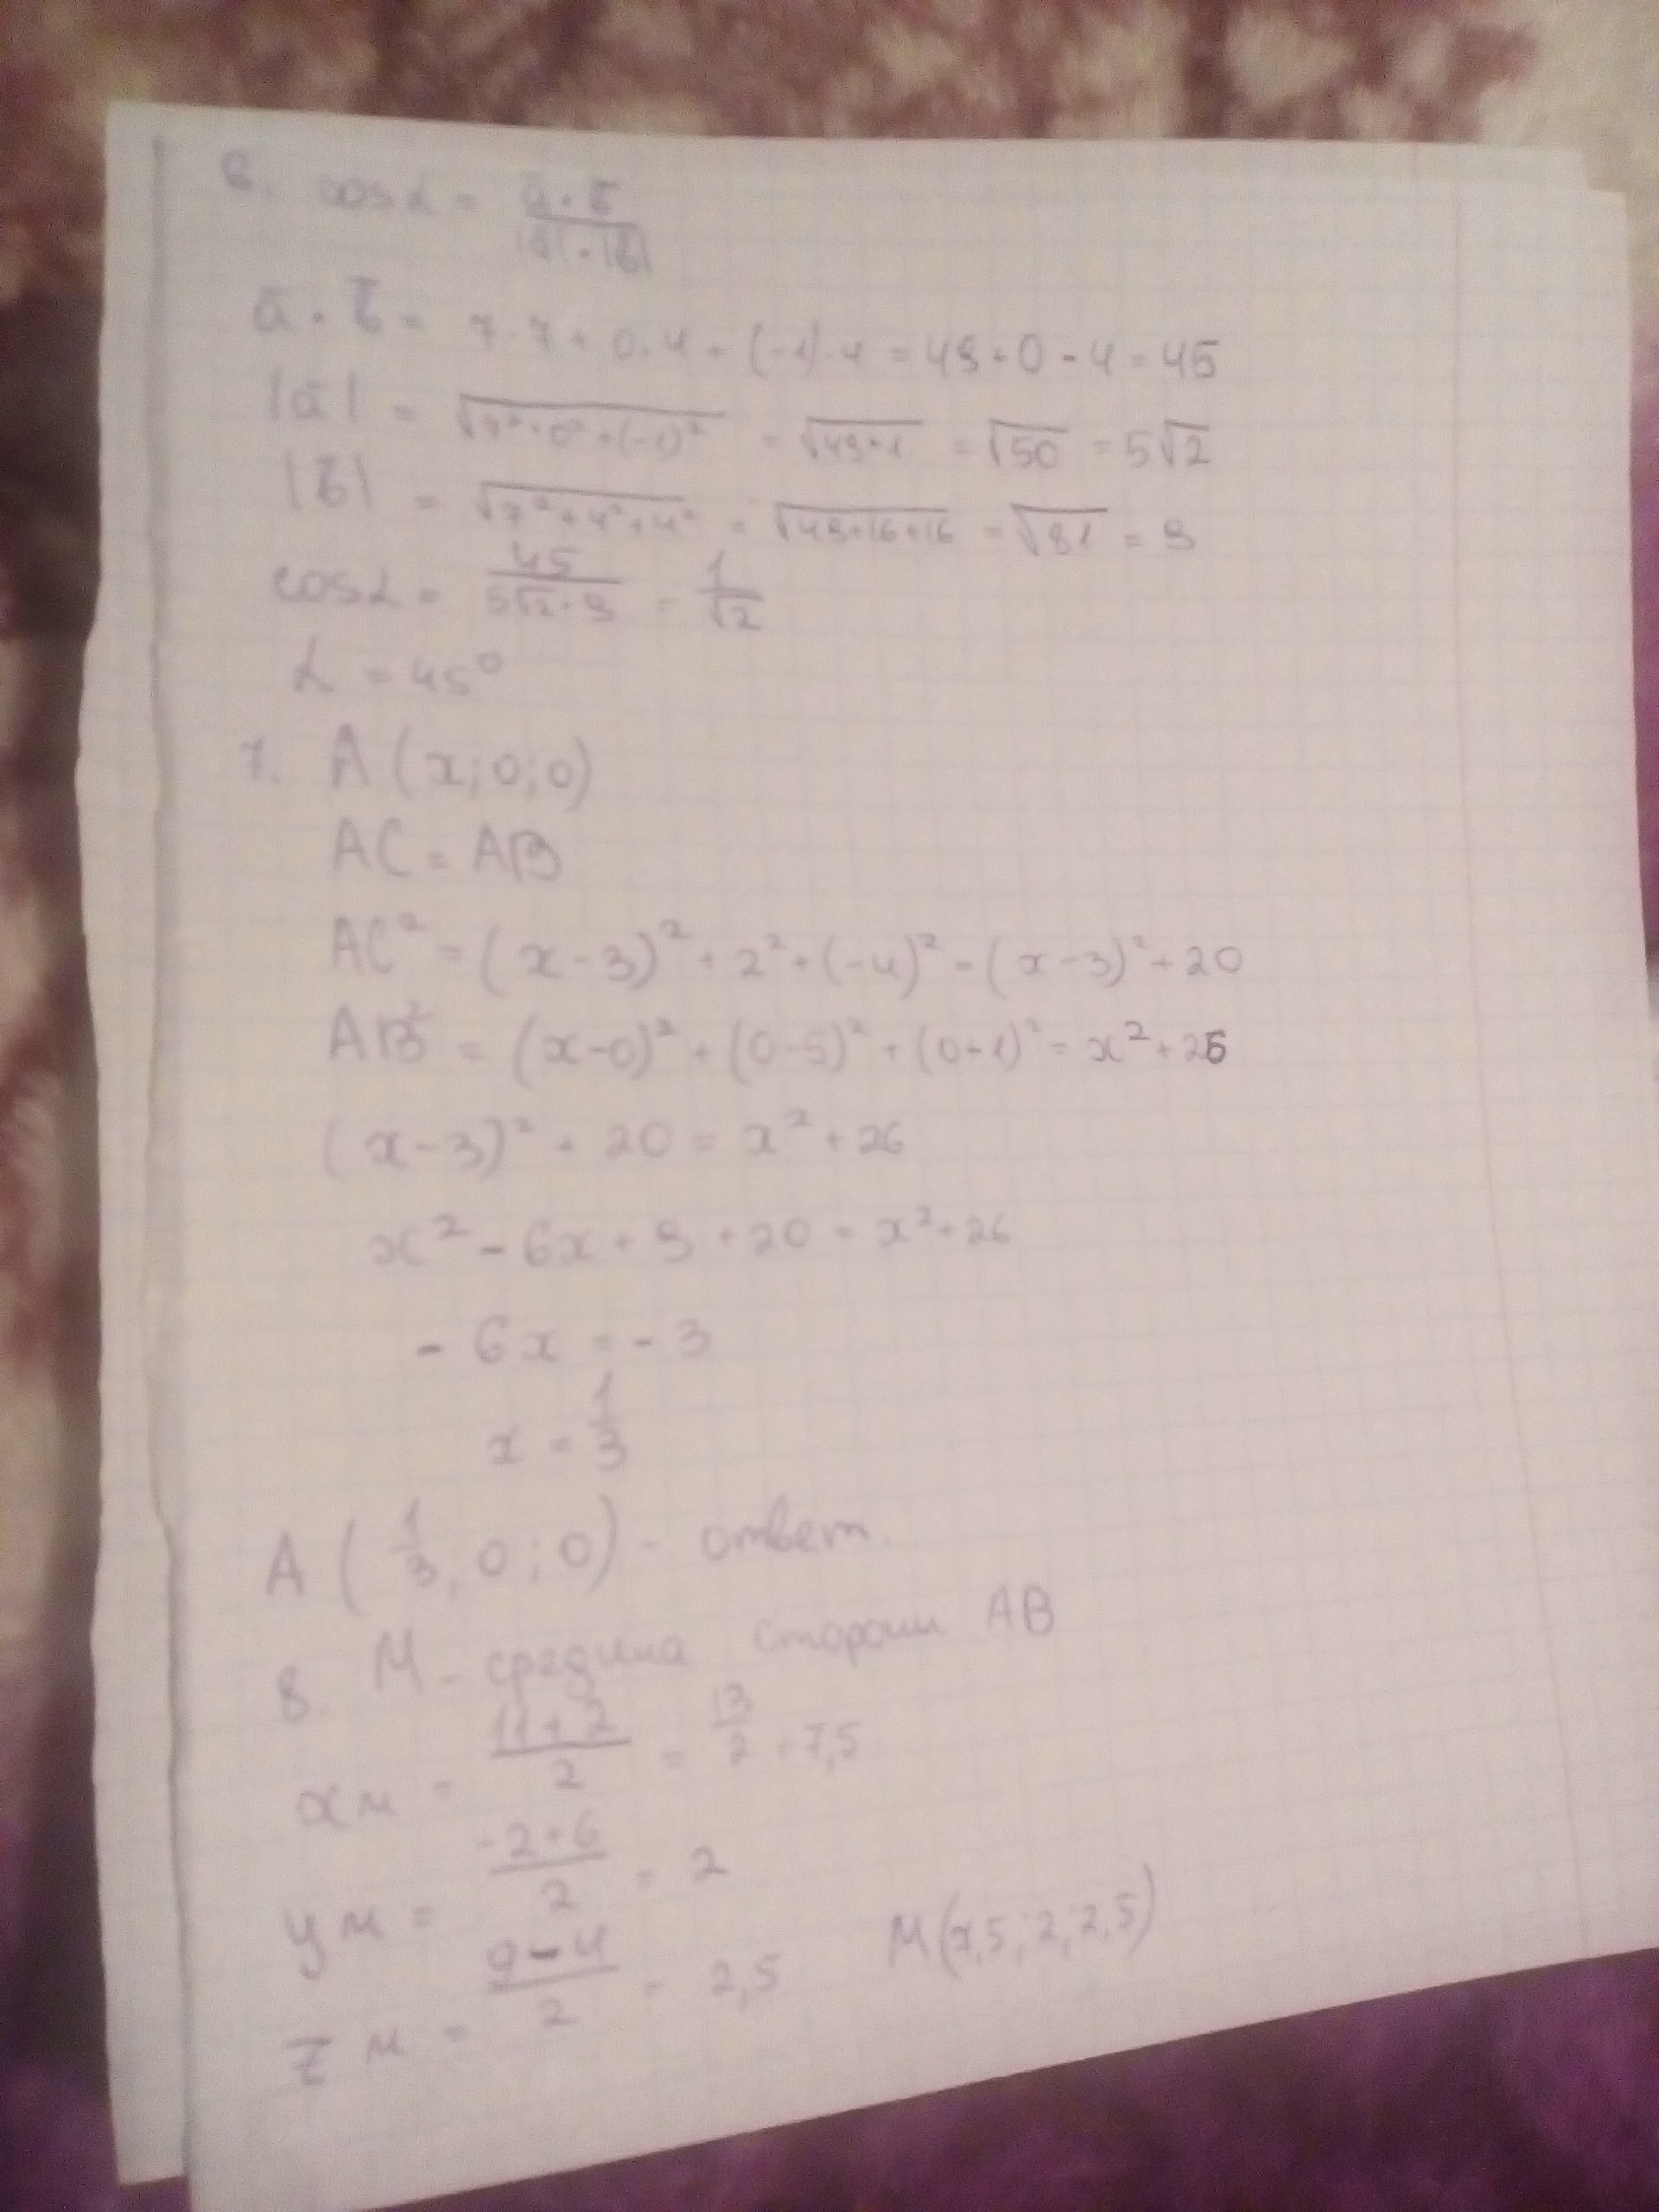 6. cos α = a̅ · b̅ / |a̅| · |b̅|
a̅ · b̅ = 7 · 7 + 0 · 4 + (-1) · 4 = 49 + 0 - 4 = 45
|a̅| = √(7² + 0² + (-1)²) = √(49 + 1) = √50 = 5√2
|b̅| = √(7² + 4² + 4²) = √(49 + 16 + 16) = √81 = 9
cos α = 45 / 5√2 · 9 = 1/√2
α = 45°
7. A (x; 0; 0)
AC = AB
AC² = (x - 3)² + 2² + (-4)² = (x - 3)² + 20
AB² = (x - 0)² + (0 - 5)² + (0 + 1)² = x² + 26
(x - 3)² + 20 = x² + 26
x² - 6x + 9 + 20 = x² + 26
- 6x = - 3
x = 1/3
A (1/3, 0; 0) - ответ.
8. M - средина стороны AB
xм = 11 + 2 / 2 = 13/2 = 7,5
yм = -2 + 6 / 2 = 2
zм = 9 - 4 / 2 = 2,5 M(7,5; 2; 2,5)